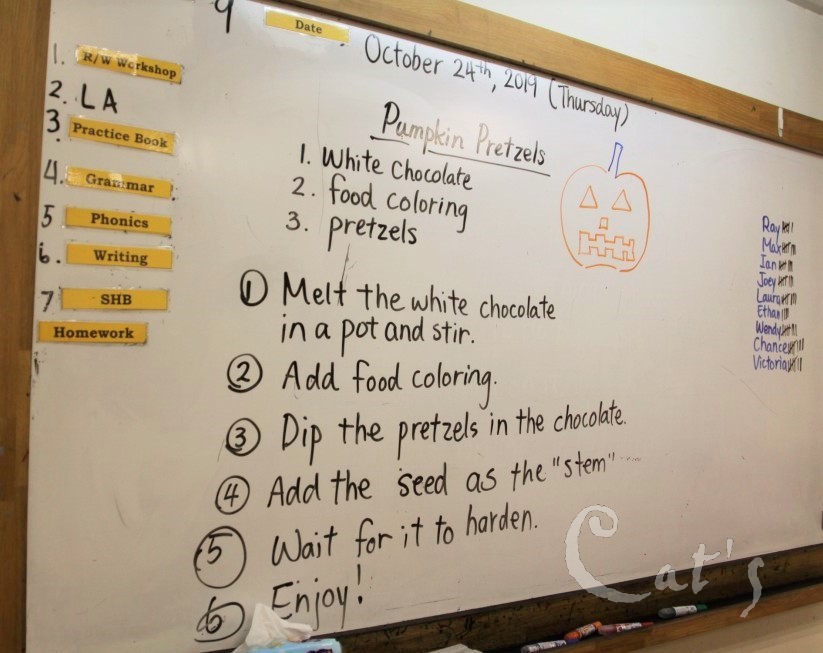 9
Date
October 24th, 2019 (Thursday)
1. R/W Workshop
2. LA
3 Practice Book
4. Grammar
5 Phonics
6. Writing
7 SHB
Homework
Pumpkin Pretzels
1. White Chocolate
2. food coloring
3. pretzels
① Melt the white chocolate
in a pot and stir.
② Add food coloring.
③ Dip the pretzels in the chocolate.
④ Add the seed as the "stem"
⑤ Wait for it to harden.
⑥ Enjoy!
Ray
Max
Ian
Joey
Laura
Ethan
Wendy
Chance
Victoria
Cat's